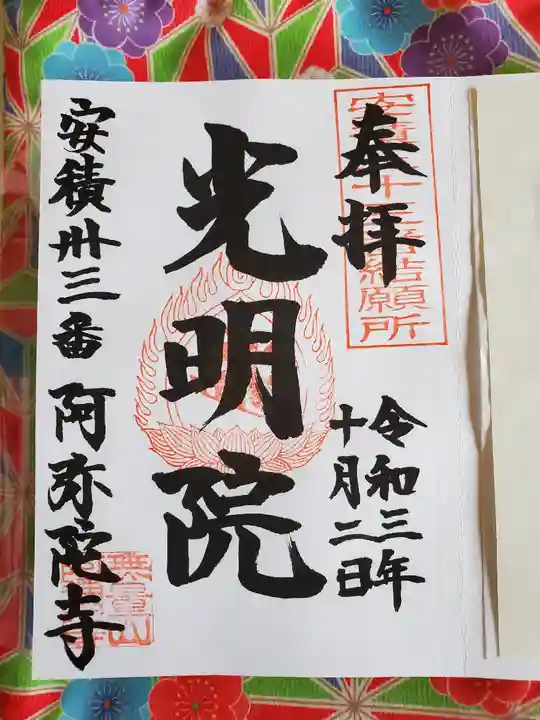 奉拝
安積三十三番結願所
令和三年
十月二日
光明院
安積卅三番 阿弥陀寺
無量山